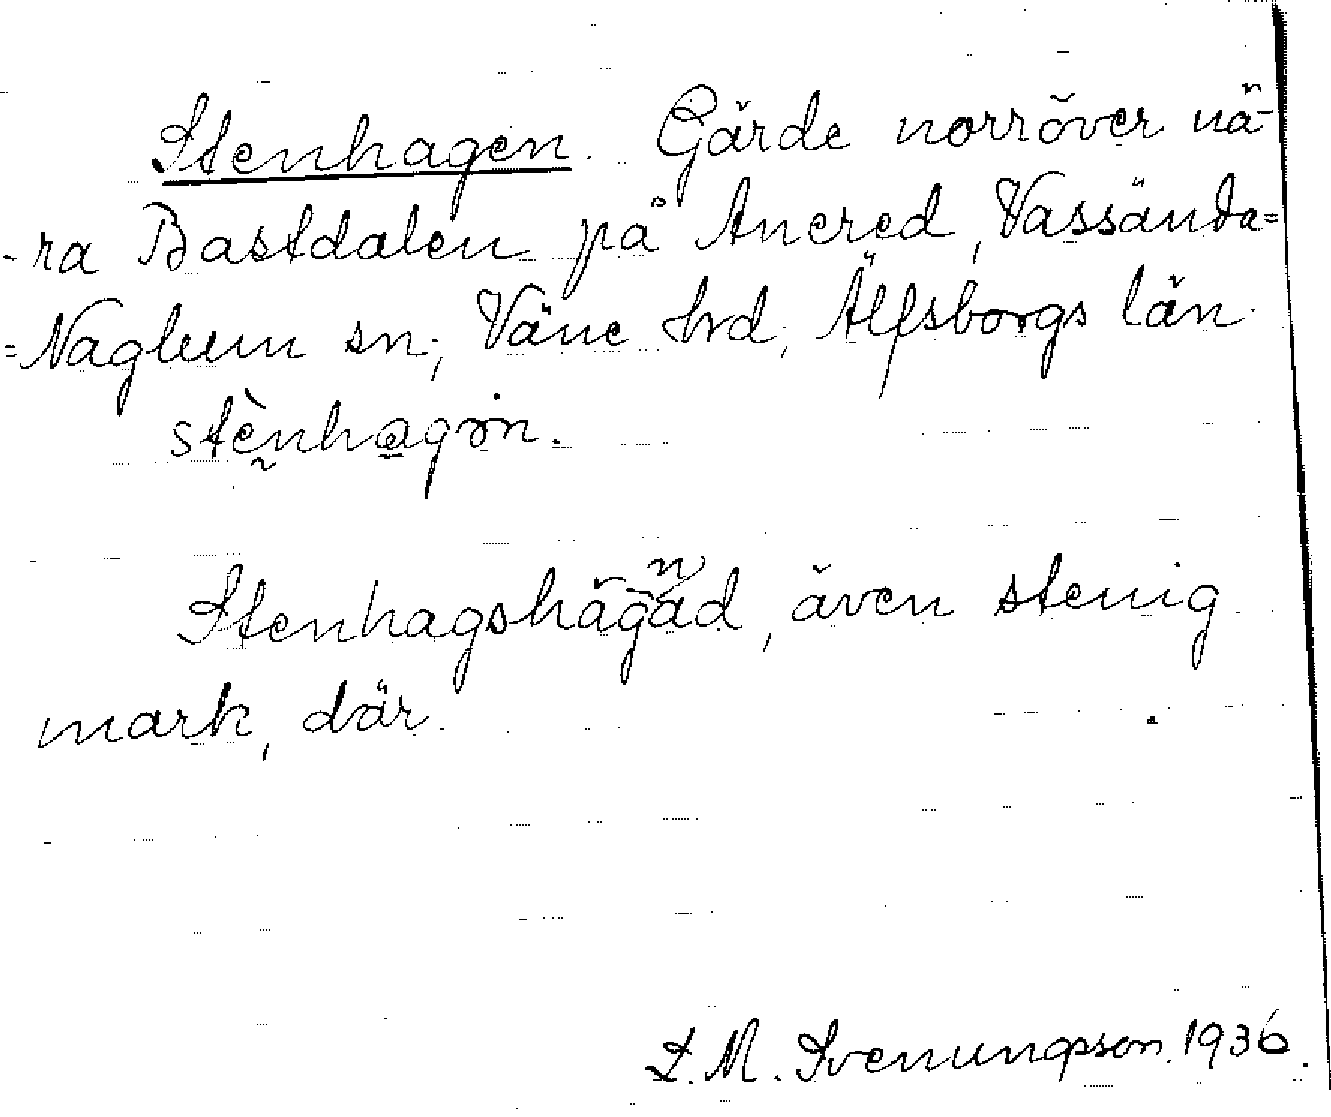 Stenhagen. Gärde norröver nä-
-ra Bastdalen på Ancred, Vassända=
=Naglum sn; Väne hrd, Älfsborgs län
stènhagən.
Stenhagshägnad, även stenig
mark, där.
L. M. Svenungsson. 1936.